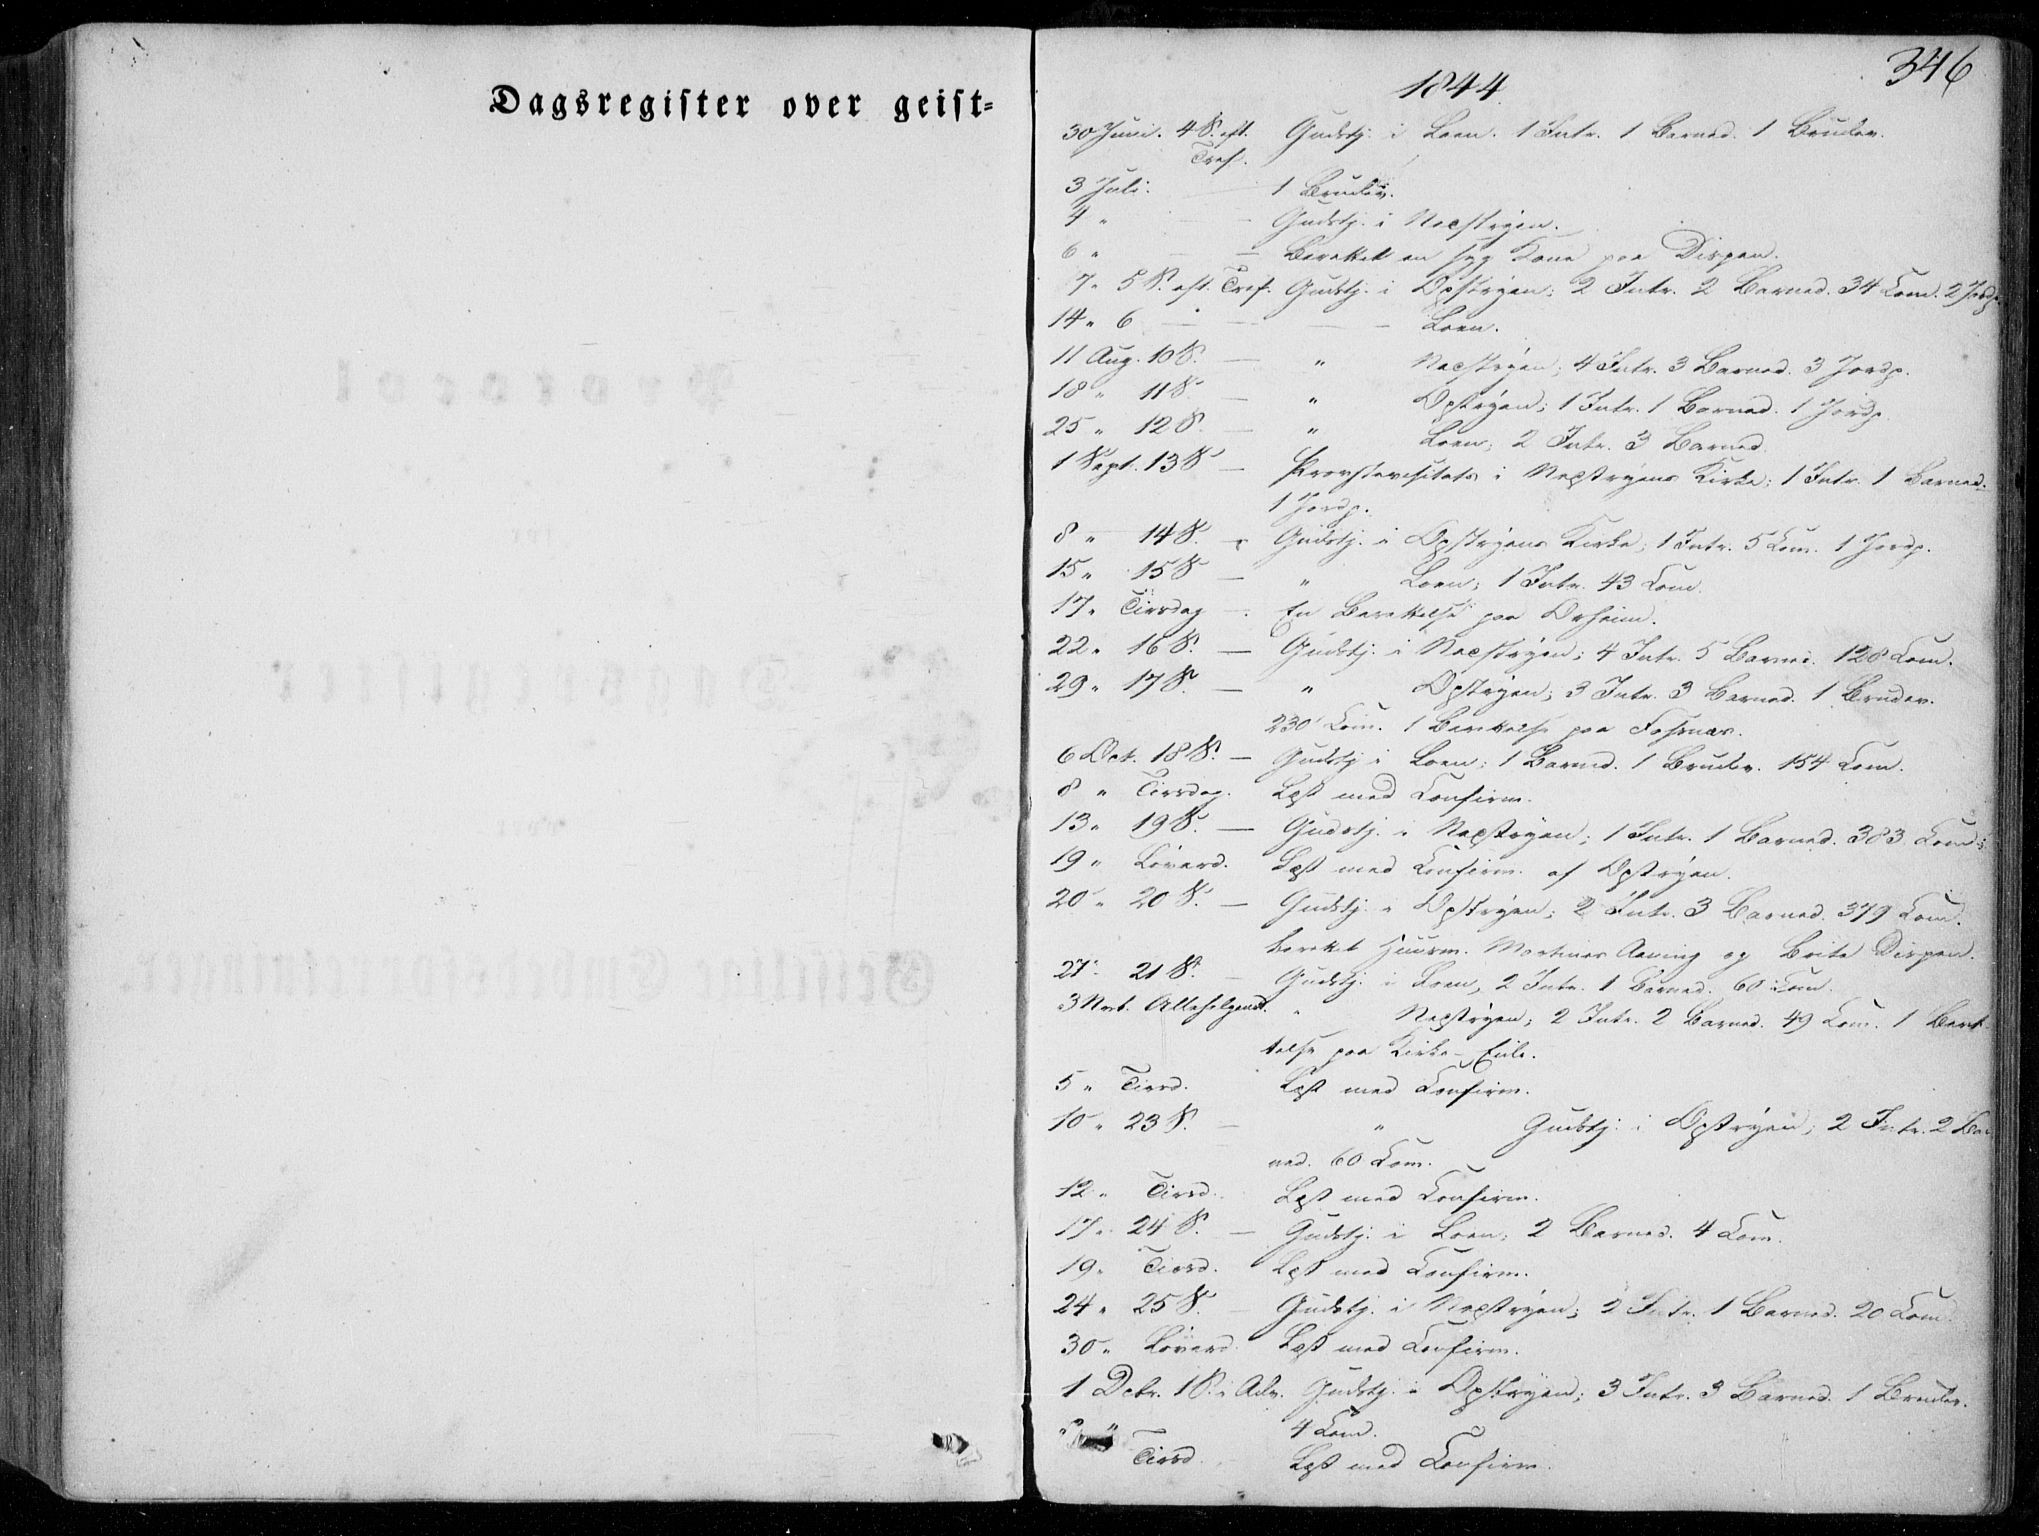 Dagsregister over geist-
346
1844.
30 Juni. 4 S. eft. Gudstj. i Loen. 1 Intr. 1 Barned. 1 Brudev.
Tref.
3 Juli. 1 Brudev.
4 " Gudstj. i Nedstryen.
6 " Berettet en syg Kone paa Dispen.
7 " 5 S. eft. Tref. Gudstj. i Opstryen; 2 Intr. 2 Barned. 34 Com. 2 Jordp.
14 " 6 — — — Loen.
11 Aug. 10 S. — " Nedstryen; 4 Intr. 3 Barned. 3 Jordp.
18 " 11 S. — " Opstryen; 1 Intr. 1 Barned. 1 Jordp.
25 " 12 S. — " Loen; 2 Intr. 3 Barned.
1 Sept. 13 S — Provstevisitats i Nedstryens Kirke; 1 Intr. 1 Barned.
1 Jordp.
8 " 14 S. — Gudstj. i Opstryens Kirke; 1 Intr. 5 Com. 1 Jordp.
15 " 15 S — " Loen; 1 Intr. 43 Com.
17 " Tirsdag — En Berettelse paa Orheim.
22 " 16 S. — Gudstj. i Nedstryen; 4 Intr. 5 Barned. 128 Com.
29 " 17 S. — " Opstryen; 3 Intr. 3 Barned. 1 Brudev.
230 Com. 1 Berettelse paa Fosnæs.
6 Oct. 18 S. — Gudstj i Loen; 1 Barned. 1 Brudev. 154 Com.
8 " Tirsdag. Læst med Confirm.
13 " 19 S. — Gudstj. i Nedstryen; 1 Intr. 1 Barned. 383 Com.
19 " Löverd. Læst med Confirm. af Opstryen.
20 " 20 S. — Gudstj. i Opstryen; 2 Intr. 3 Barned. 379 Com.
berettet Huusm. Martinus Aaning og Brite Dispen.
27 " 21 S. — Gudstj. i Loen, 2 Intr. 1 Barned. 60 Com.
3 Novb. Allehelgend. " Nedstryen; 2 Intr. 2 Barned. 49 Com. 1 Beret-
telse paa Kirke-Eide.
5 " Tirsd. Læst med Confirm.
10 " 23 S. — " Gudstj. i Opstryen; 2 Intr. 2 Bar
ned. 60 Com.
12 " Tirsd. Læst med Confirm.
17 " 24 S. — Gudstj. i Loen; 2 Barned. 4 Com.
19 " Tirsd. Læst med Confirm.
24 " 25 S. — Gudstj. i Nedstryen; 2 Intr. 1 Barned. 20 Com.
30 " Löverd. Læst med Confirm.
1 Decbr. 1 S. i Adv. Gudstj. i Opstryen; 3 Intr. 3 Barned. 1 Brudev.
4 Com.
Tirsd. Læst med Confirm.